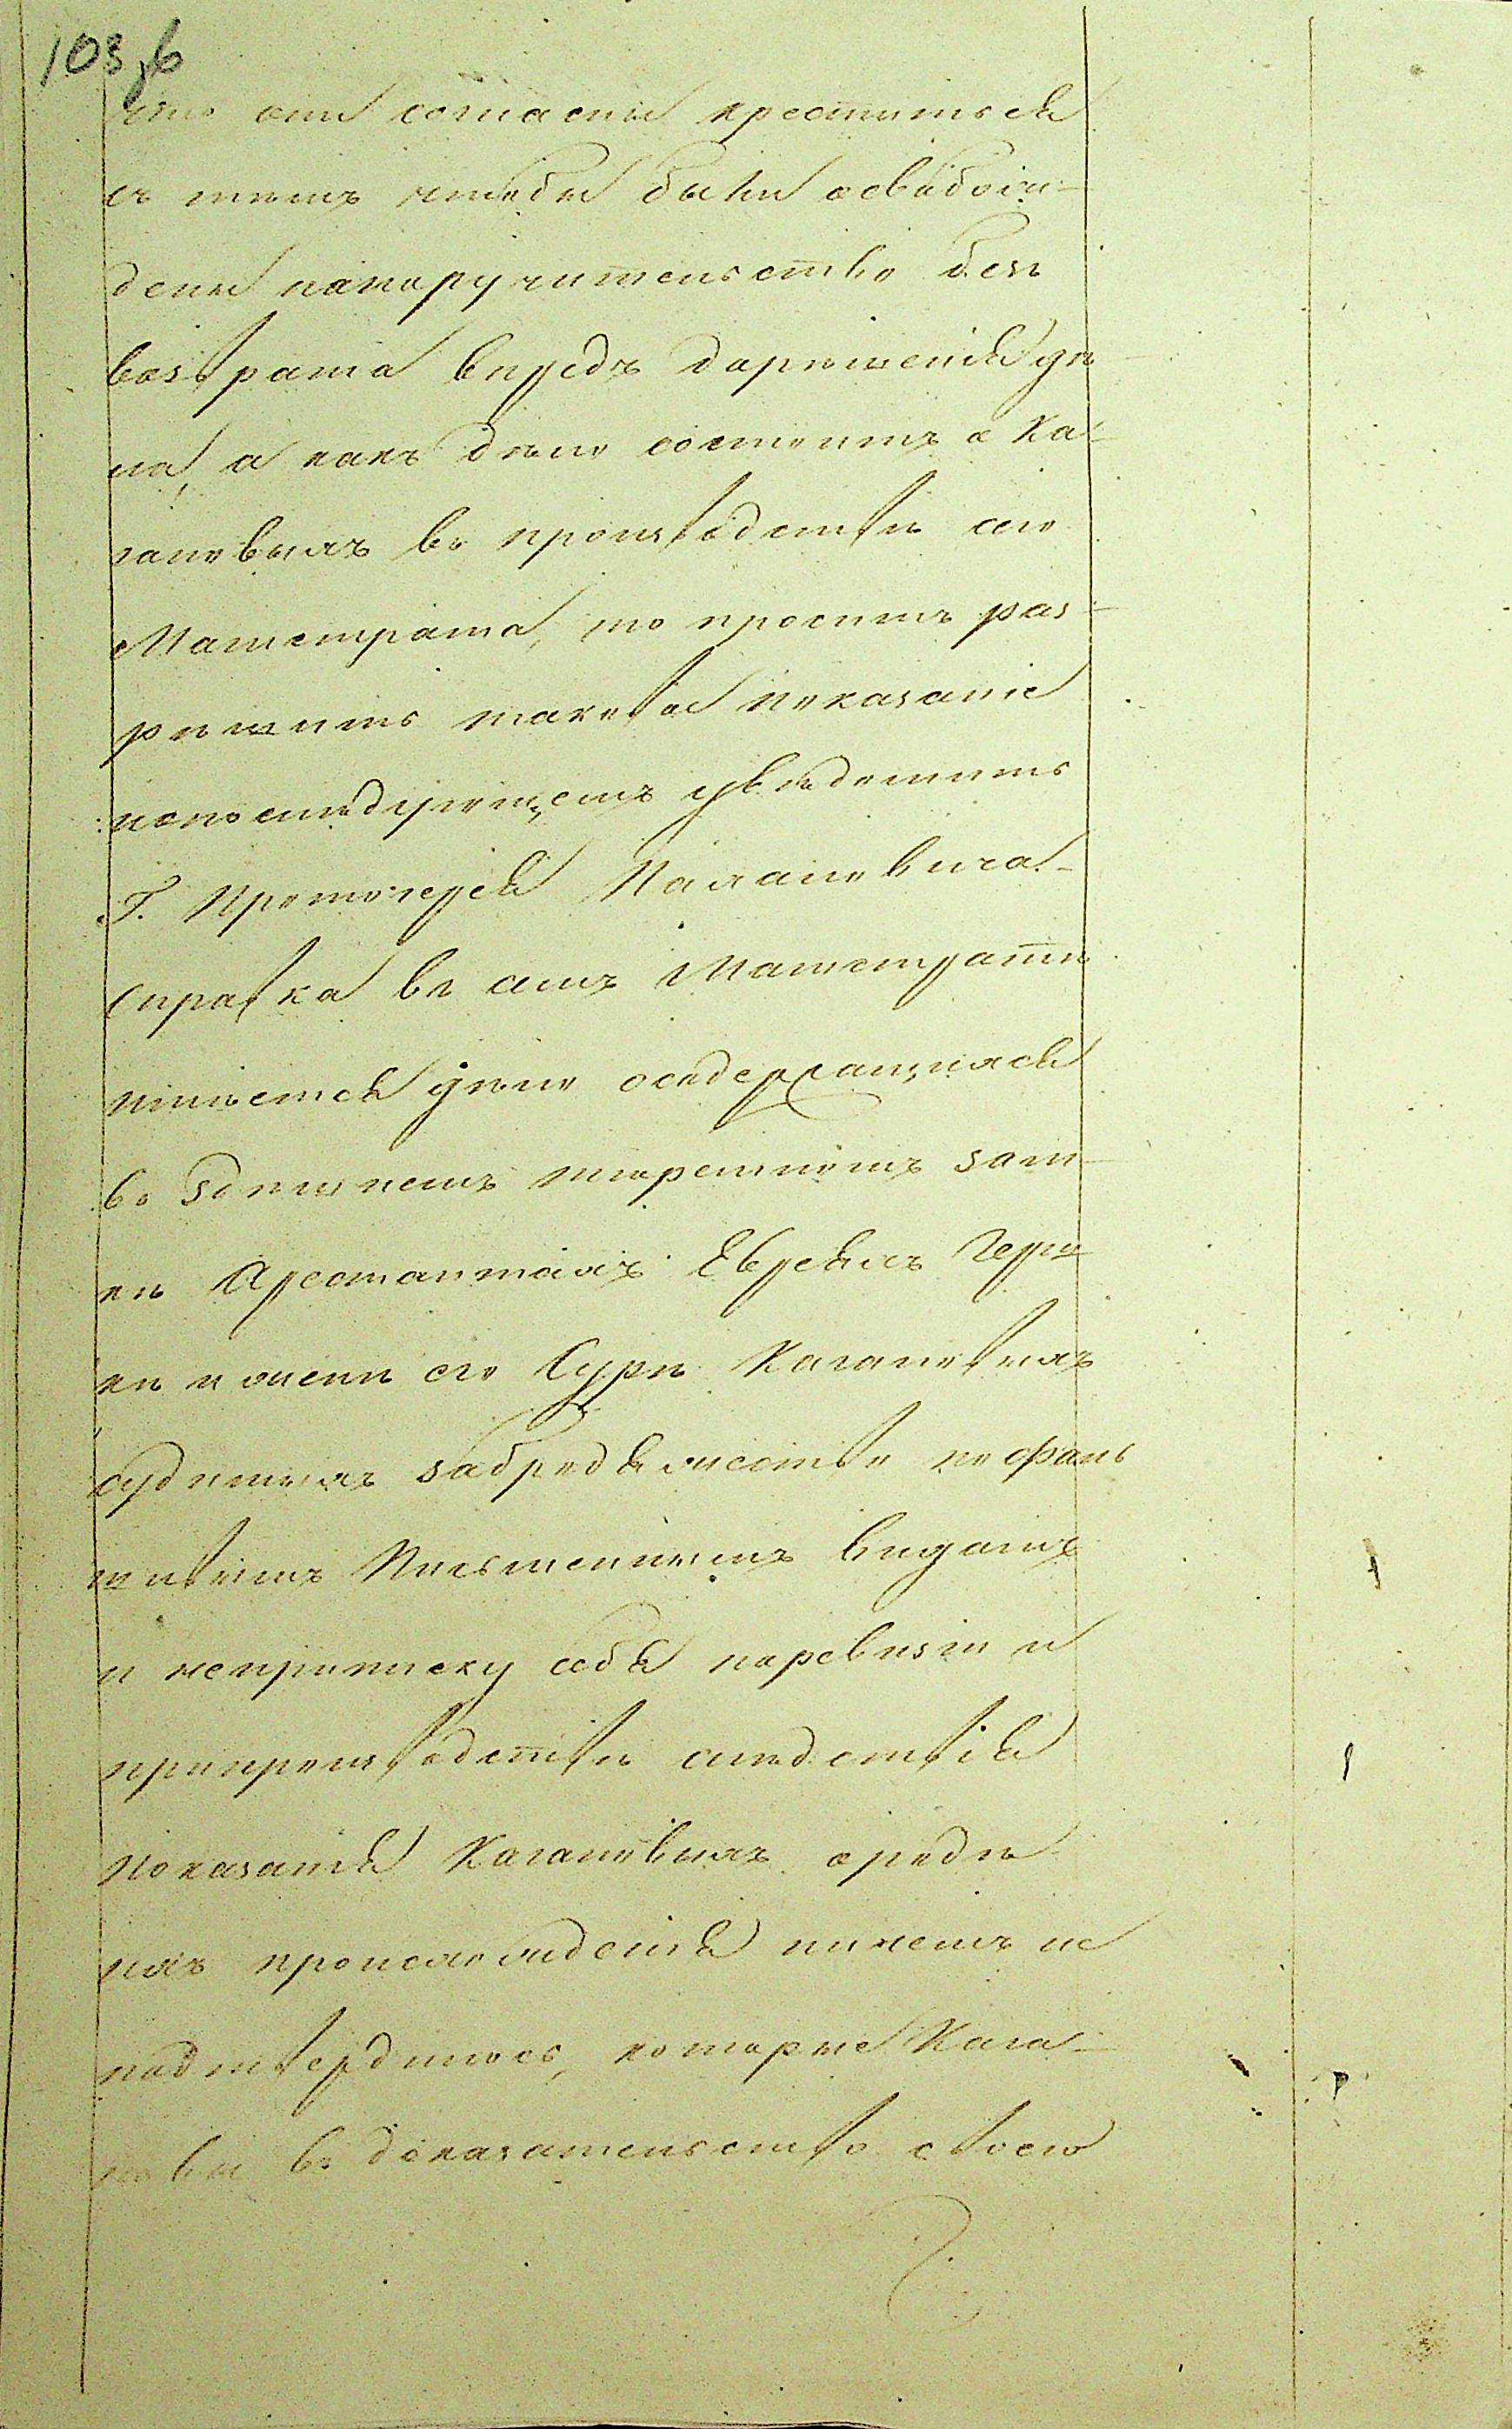 103 об
что они согласны креститься
съ темъ чтобы были освобож-
дены напоручительство безъ
возврата впредь дорешения де
ла, а какъ дело состоитъ о Ка-
гановыхъ въ производстве сего
Магистрата, то проситъ раз-
решить таковое показание
ипоследующемъ уведомить
Г. Протоиерея Малиновича-
Справка въ семъ Магистрате
имеется дело осодержащихся
во здешнемъ тюремномъ зам-
ке Арестантахъ Евреяхъ Герш
ке и жене его Суре Кагановыхъ
судимыхъ забродяжество пофаль
шивымъ письменнымъ видамъ
и неприписку себя поревизии и
припроизводстве следствия
показания Кагановыхъ ороде
ихъ происхождения ничемъ не
подтвердилось, которые Кага-
новы въ доказательство своего